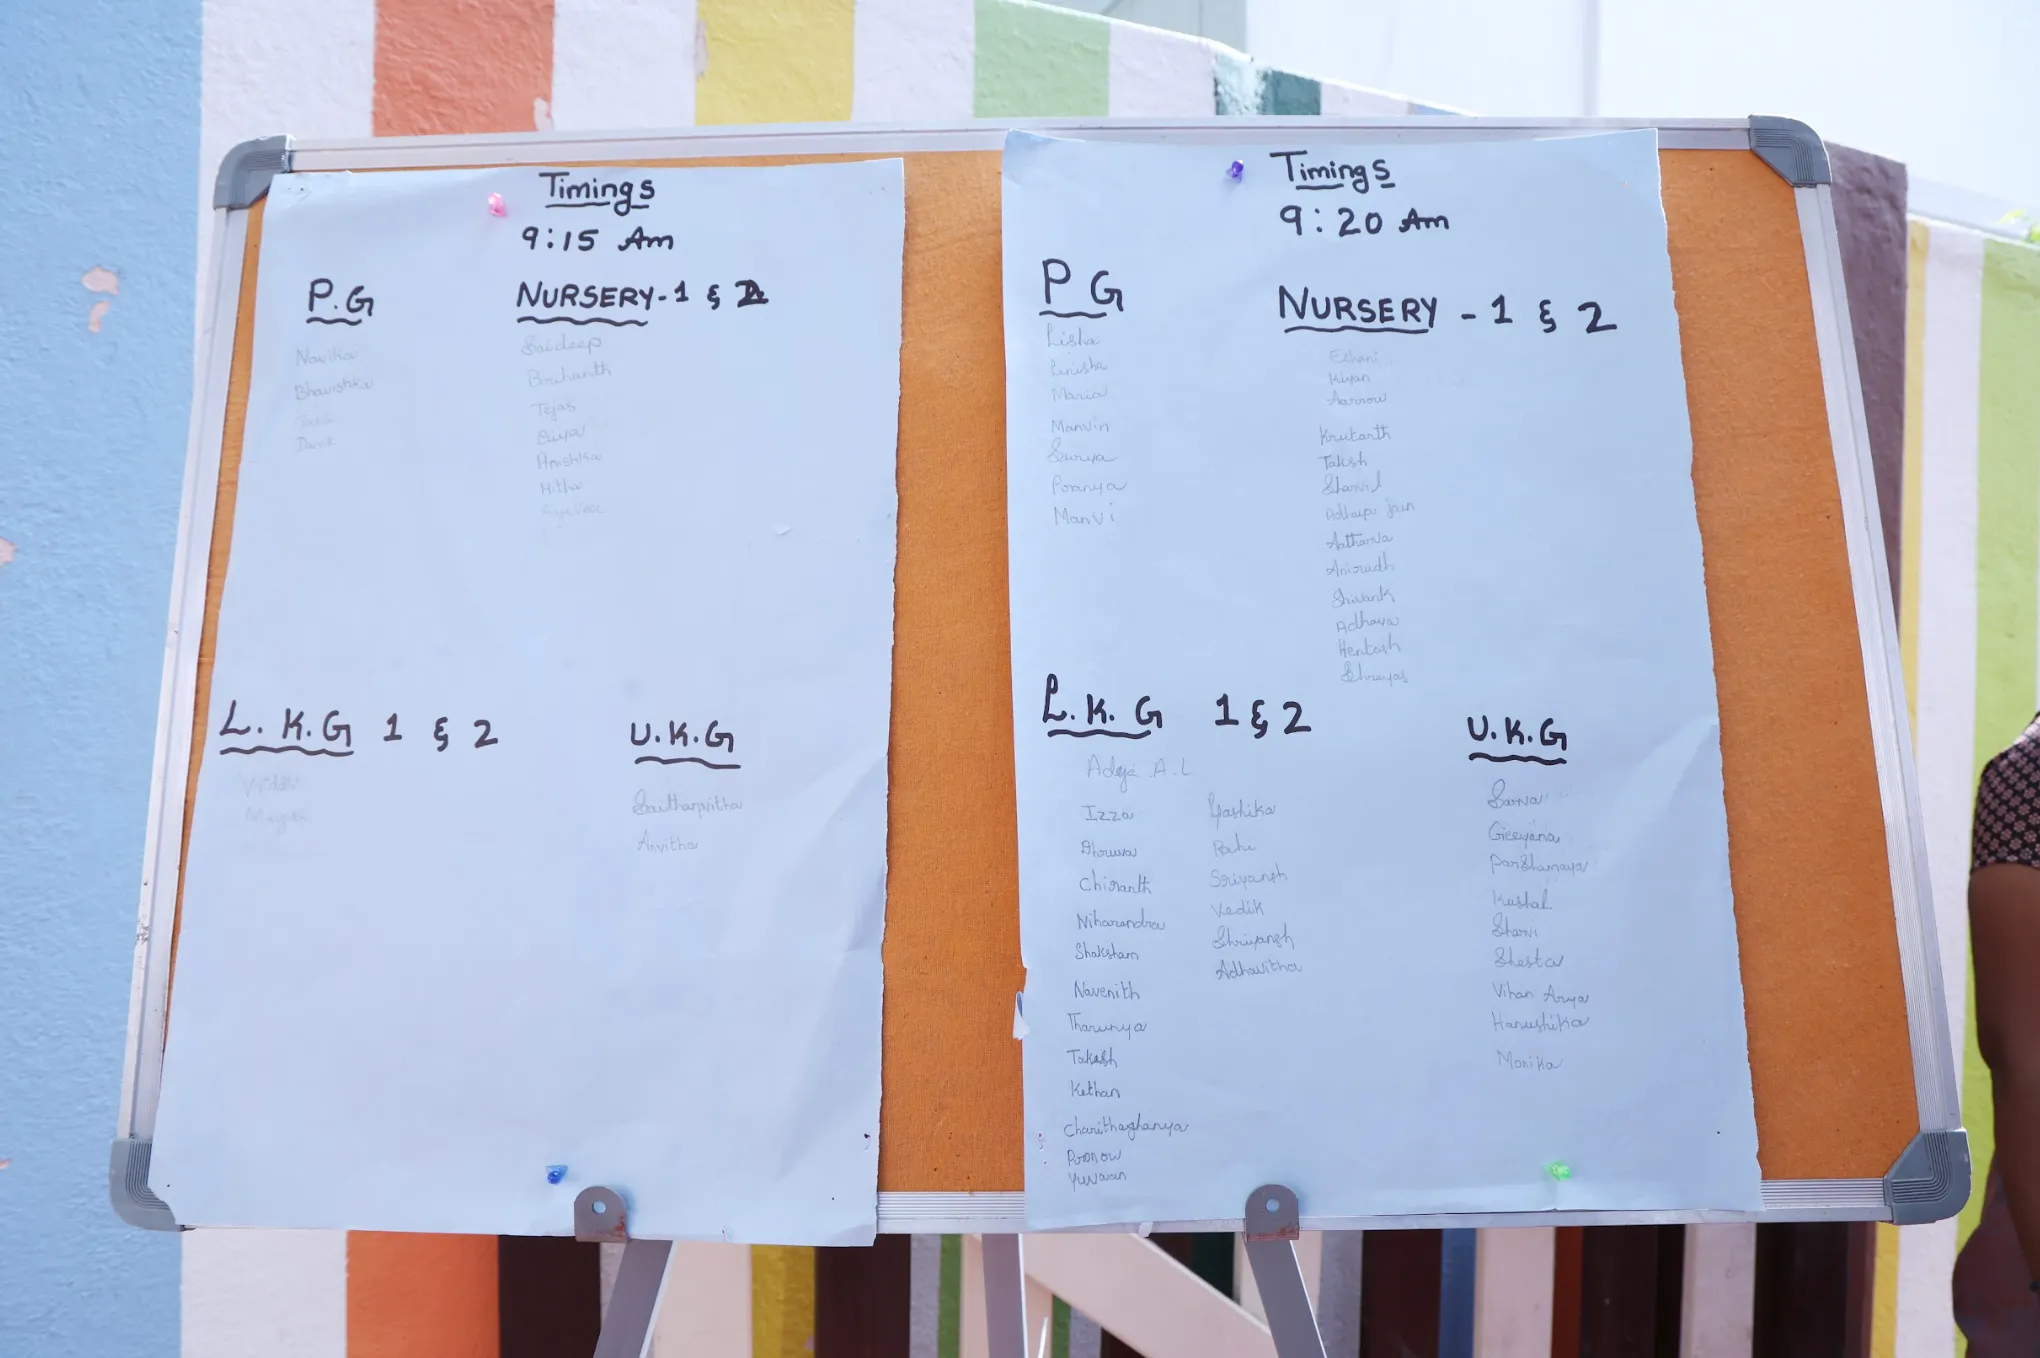 Timings
9:15 Am
P.G
Navika
Bhavishka
NURSERY-1 & 2
Saideep
Brihanth
Tejas
Diya
Anishka
Hitha
L.K.G 1 & 2
U.K.G
Anvitha
Timings
9:20 Am
P G
Lisha
Linisha
Maria
Manvin
Surya
Poranya
Manvi
NURSERY - 1 & 2
Eshani
Kiyan
Aarrow
Krutarth
Taksh
Sharvil
Jain
Aatharva
Anirudh
Shivank
Adhava
Hentash
Shreyas
L.K.G 1 & 2
A.L
Izza
Dhruva
Chiranth
Niharendra
Shaksham
Navenith
Tharunya
Taksh
Kethan
Charithaghanya
Yuvaan
Yashika
Sriyansh
Vedik
Shriyansh
Adhavitha
U.K.G
Sarva
Geeyana
Parshamaya
Kushal
Sharvi
Shesta
Vihan Arya
Hanushika
Monika